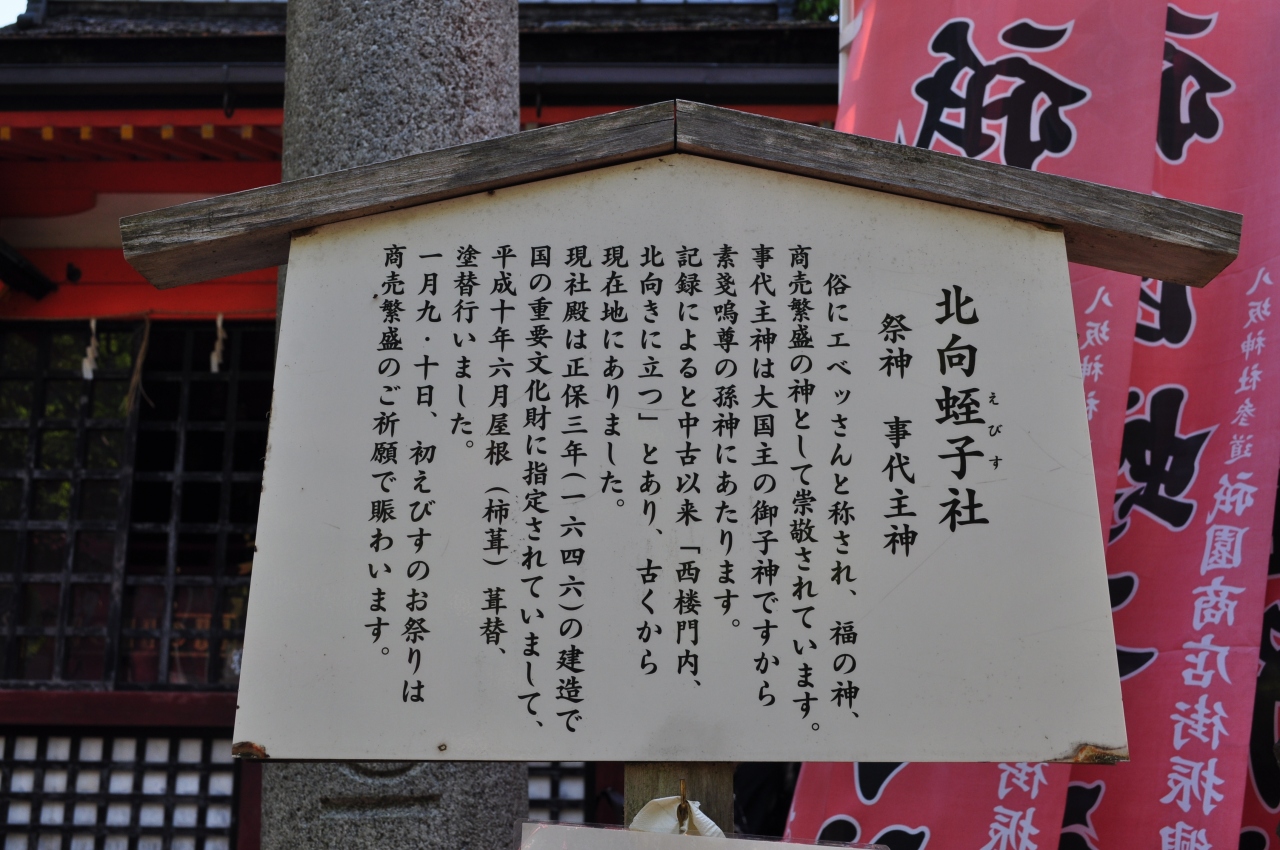 北向蛭子社
えびす
祭神　事代主神
俗にエベッさんと称され、福の神、
商売繁盛の神として崇敬されています。
事代主神は大国主の御子神ですから
素戔嗚尊の孫神にあたります。
記録によると中古以来「西楼門内、
北向きに立つ」とあり、古くから
現在地にありました。
現社殿は正保三年(一六四六)の建造で
国の重要文化財に指定されていまして、
平成十年六月屋根（柿葺）葺替、
塗替行いました。
一月九・十日、初えびすのお祭りは
商売繁盛のご祈願で賑わいます。
八坂神社参道
祇園商店街振
八坂神社
街振